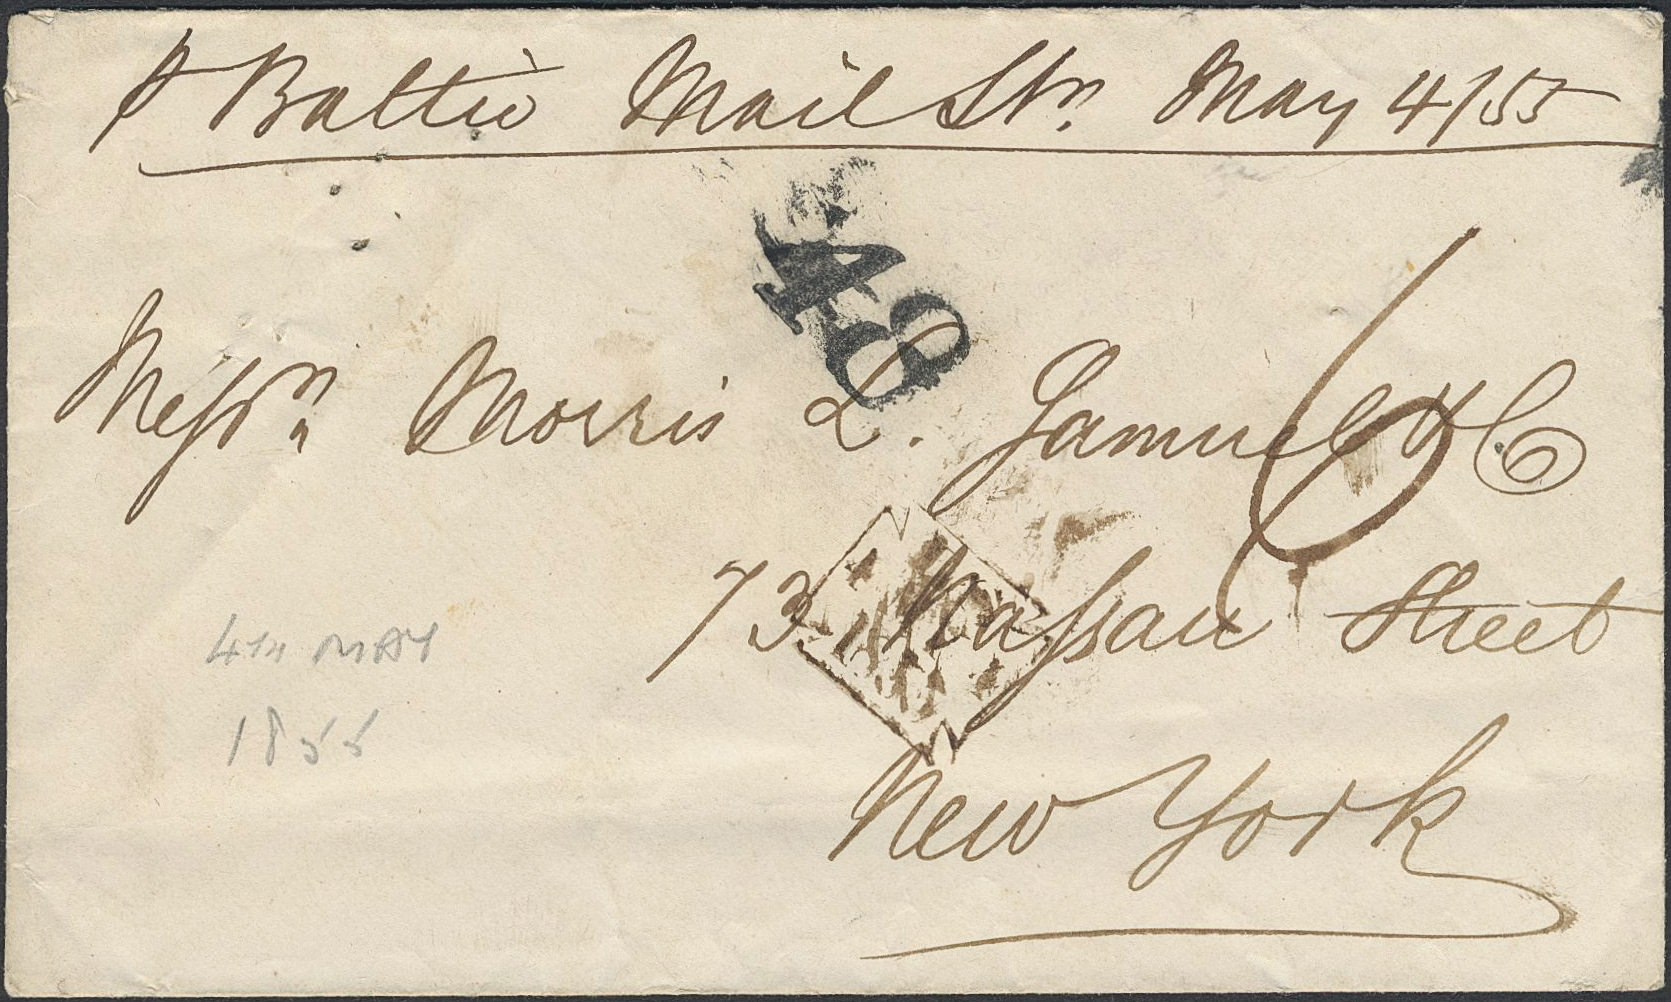 p Baltic Mail Str. May 4/55
48
Messrs Morris L. Samuel & Co
6
73 Nassau Street
New York
4TH MAY
1855